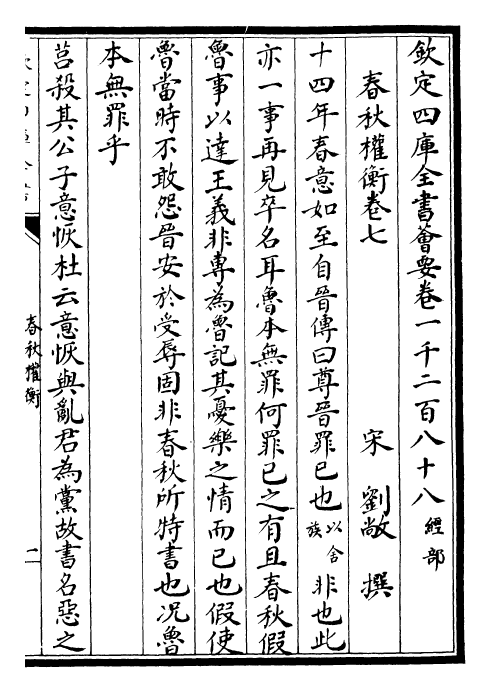 欽定四庫全書薈要卷一千二百八十八 經部
春秋權衡卷七
宋 劉敞 撰
十四年春意如至自晉傳曰尊晉罪已也 以舍族 非也此
亦一事再見卒名耳魯本無罪何罪已之有且春秋假
魯事以達王義非專為魯記其憂樂之情而已也假使
魯當時不敢怨晉安於受辱固非春秋所特書也况魯
本無罪乎
莒殺其公子意恢杜云意恢與亂君為黨故書名惡之
春秋權衡
一